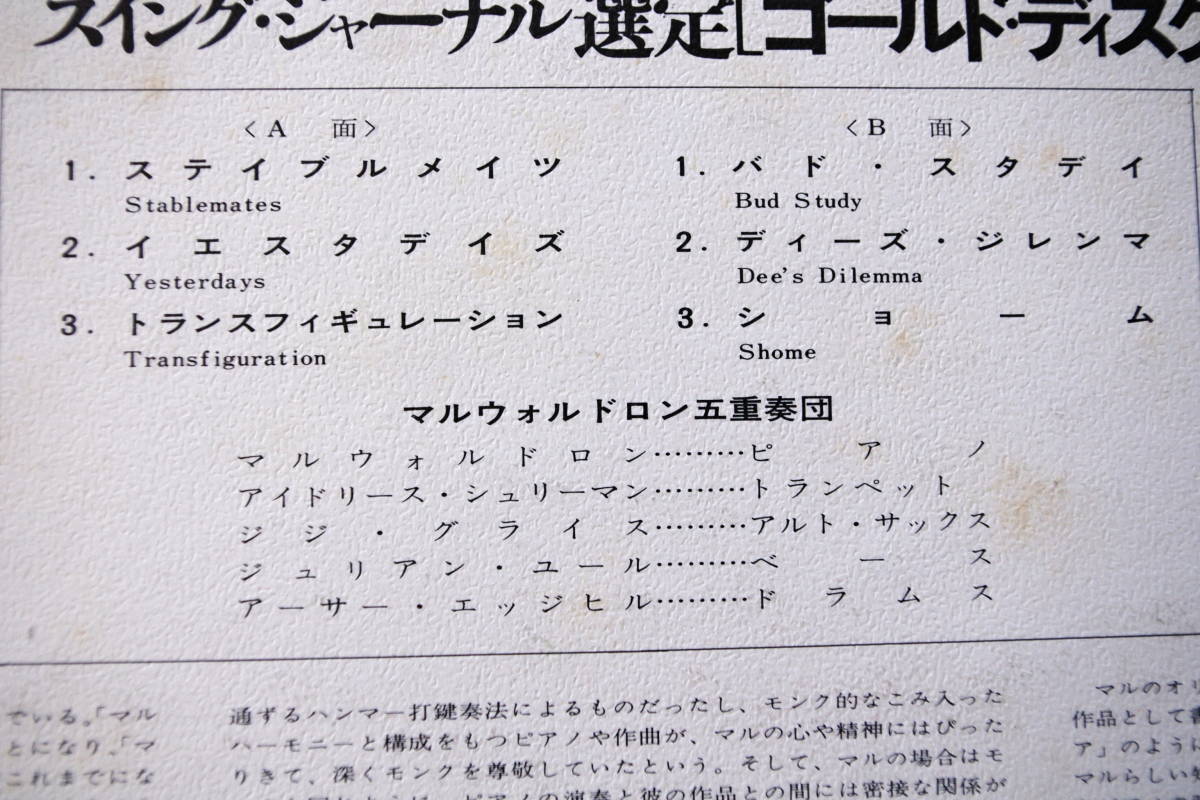 スイング・ジャーナル選定[ゴールド・ディスク
〈A 面〉
1. ステイブルメイツ
Stablemates
2. イエスタデイズ
Yesterdays
3. トランスフィギュレーション
Transfiguration
〈B 面〉
1. バド・スタデイ
Bud Study
2. ディーズ・ジレンマ
Dee's Dilemma
3. ショーム
Shome
マルウォルドロン五重奏団
マルウォルドロン………ピアノ
アイドリース・シュリーマン………トランペット
ジジ・グライス………アルト・サックス
ジュリアン・ユール………ベース
アーサー・エッジヒル………ドラムス
でいる。「マル
とになり、「マ
これまでにな
通ずるハンマー打鍵奏法によるものだったし、モンク的なこみ入った
ハーモニーと構成をもつピアノや作曲が、マルの心や精神にはぴった
りきて、深くモンクを尊敬していたという。そして、マルの場合はモ
ピアノの演奏と彼の作品との間には密接な関係が
マルのオリ
作品として書
ア」のように
マルらしい